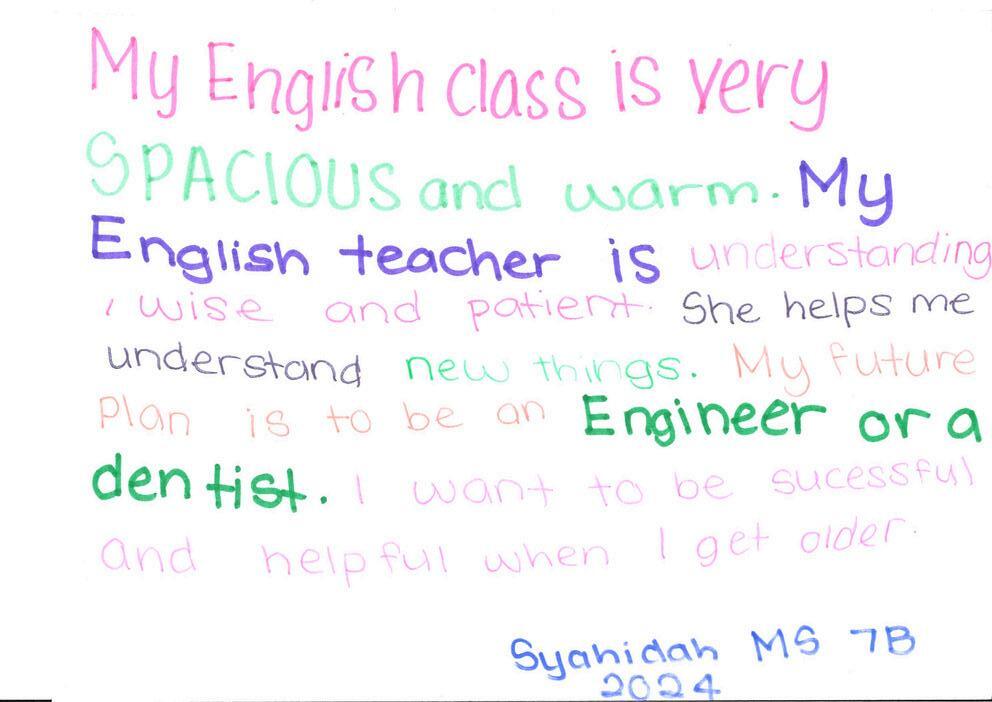 My English class is very
SPACIOUS and warm. My
English teacher is understanding
, wise and patient. She helps me
understand new things. My future
Plan is to be an Engineer or a
dentist. I want to be sucessful
and helpful when I get older.
Syahidah MS 7B
2024